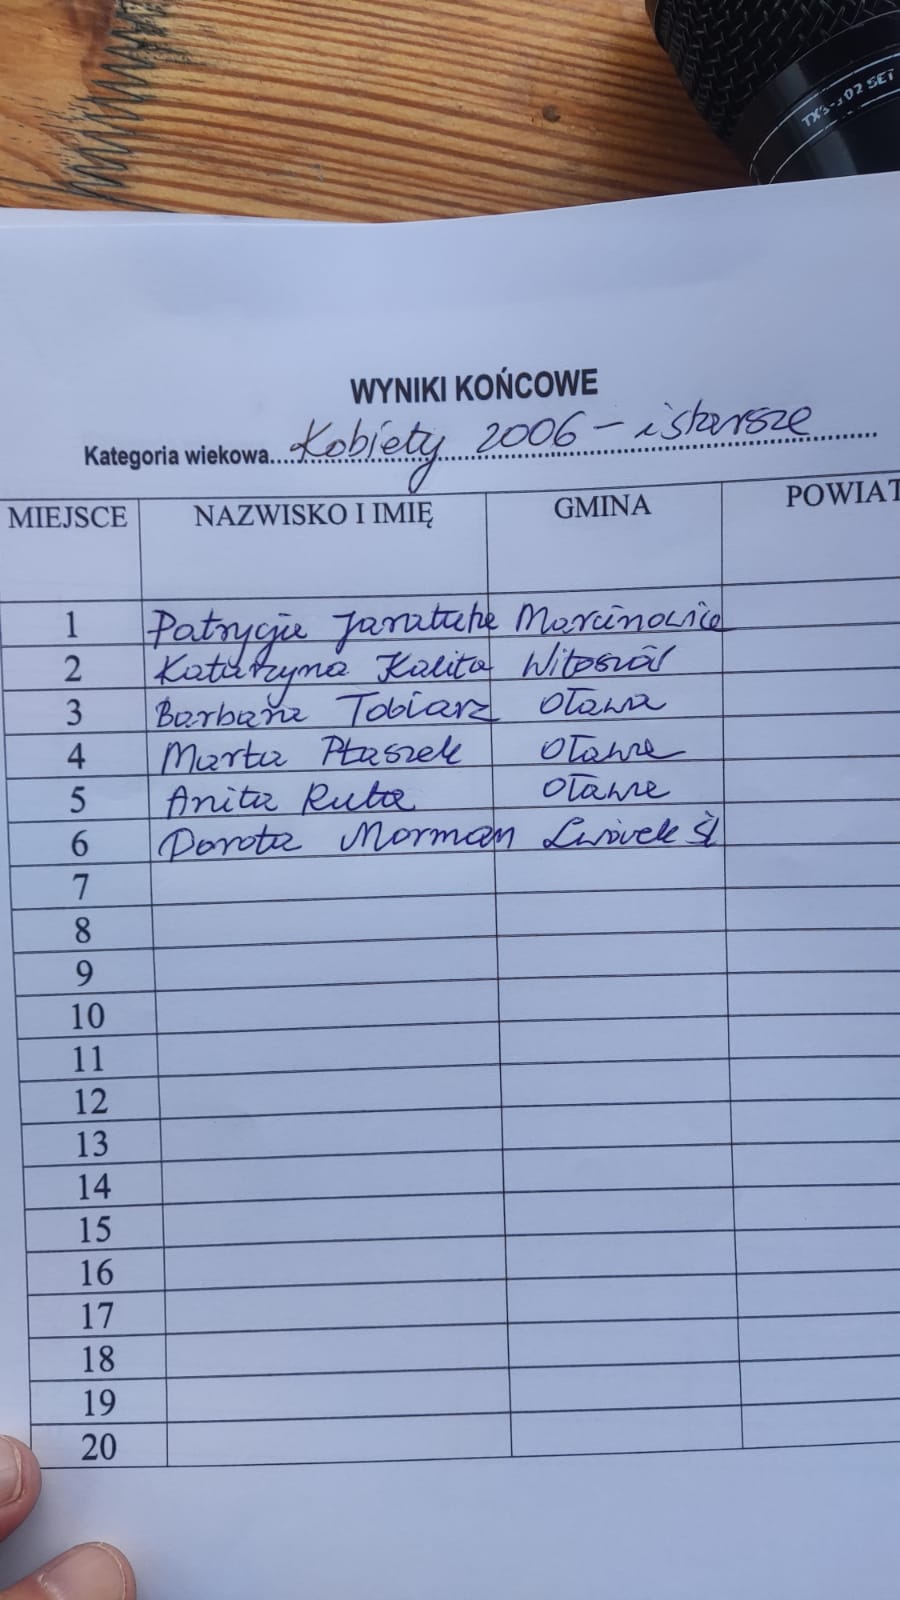 TXS-802 SET
WYNIKI KOŃCOWE
Kategoria wiekowa....Kobiety 2006 - i starsze
MIEJSCE NAZWISKO I IMIĘ GMINA POWIAT
1 Patrycja Marcinowice
2 Katarzyna Kalita Witoszów
3 Barbara Tobiarz Oława
4 Marta Ptaszek Oława
5 Anita Ruta Oława
6 Dorota Morman Lwówek Śl
7
8
9
10
11
12
13
14
15
16
17
18
19
20